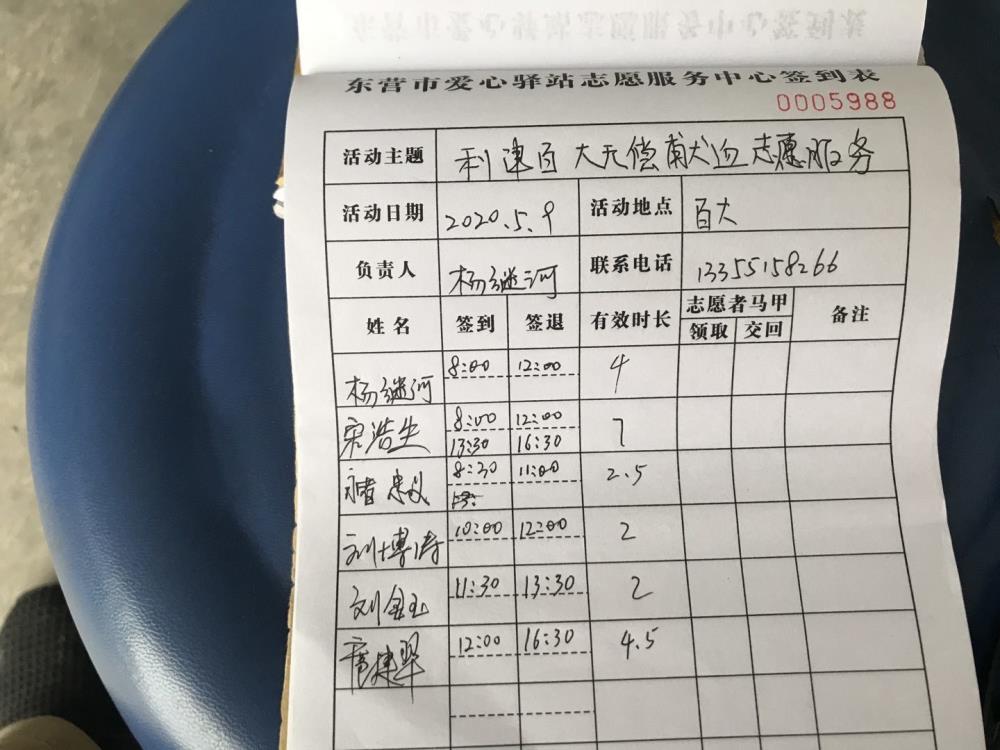 东营市爱心驿站志愿服务中心签到表
0005988
活动主题 利津百大无偿献血志愿服务
活动日期 2020.5.9 活动地点 百大
负责人 杨继河 联系电话 13355158266
姓名 签到 签退 有效时长 志愿者马甲 备注
领取 交回
杨继河 8:00 12:00 4
宋浩生 8:00 12:00 7
13:30 16:30
8:30 11:00 2.5
刘博涛 10:00 12:00 2
刘金玉 11:30 13:30 2
12:00 16:30 4.5